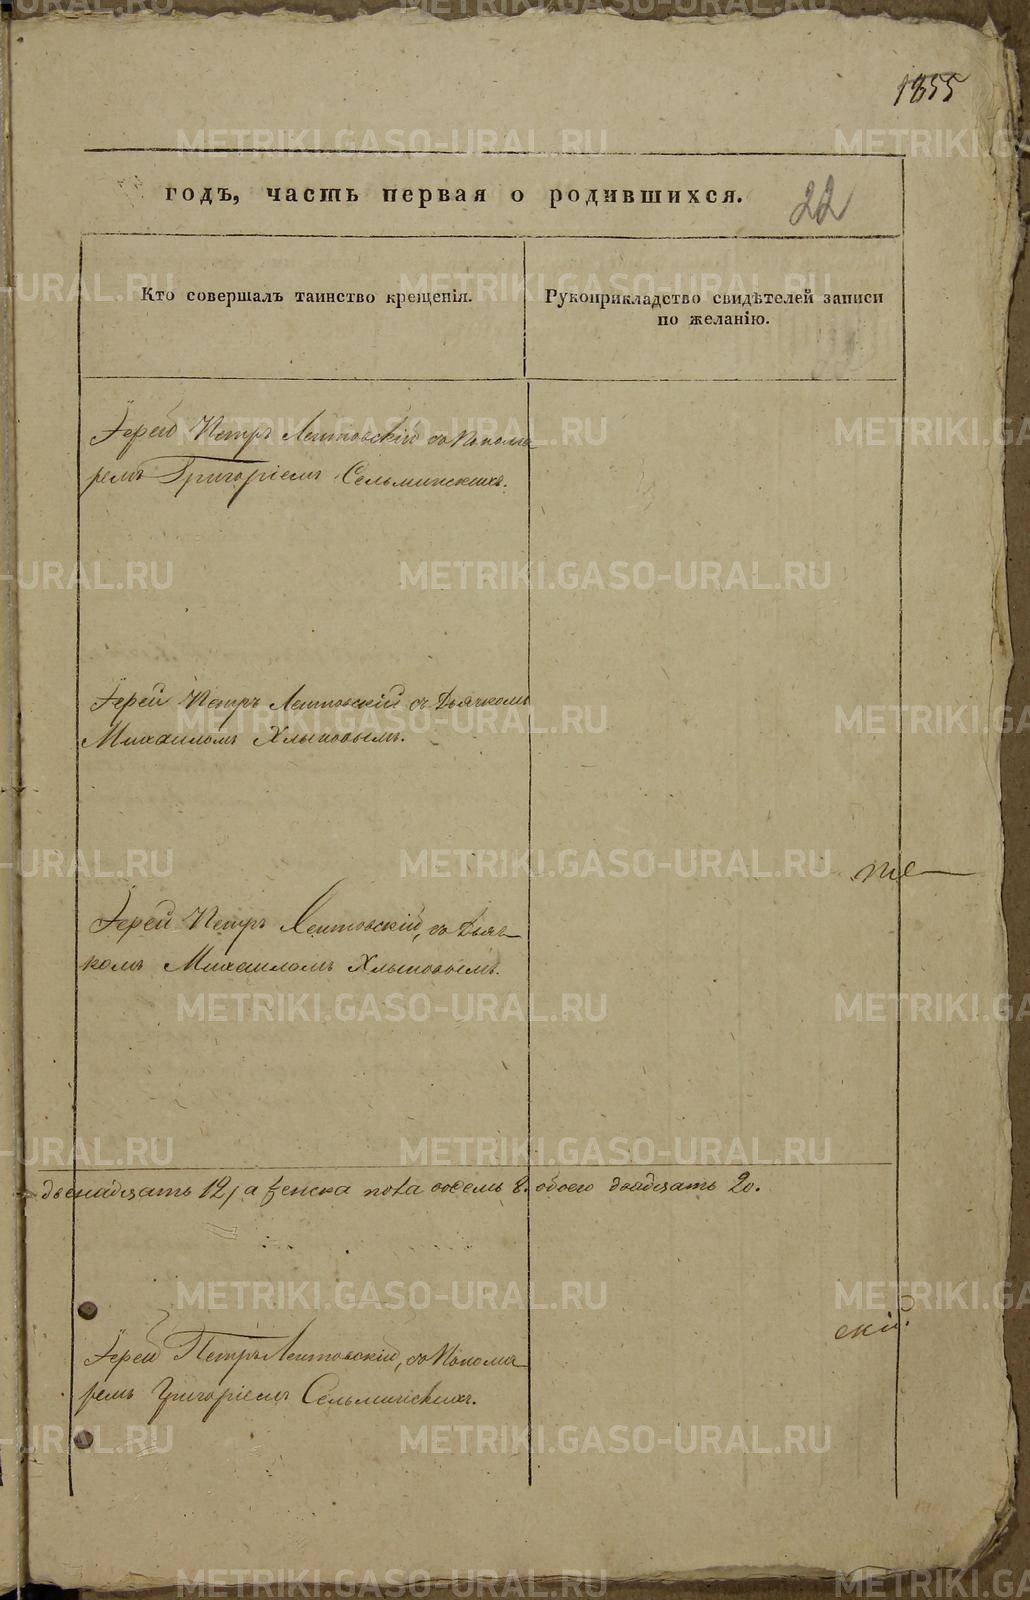 1855
годъ, часть первая о родившихся.
22
Кто совершалъ таинство крещенія.
Рукоприкладство свидѣтелей записи
по желанію.
Іерей Петръ Лептовскій со Понома
ремъ Григоріемъ Сельминскихъ.
Іерей Петръ Лептовскій съ Дьячкомъ
Михаиломъ Хлыновымъ.
же
Іерей Петръ Лептовскій, со Дьяч-
комъ Михаиломъ Хлыновымъ.
двенадцать 12, а женска пола восемь 8. обоего двадцать 20.
скій.
Іерей Петръ Лептовскій, со Понома
ремъ Григоріемъ Сельминскихъ.
METRIKI.GASO-URAL.RU